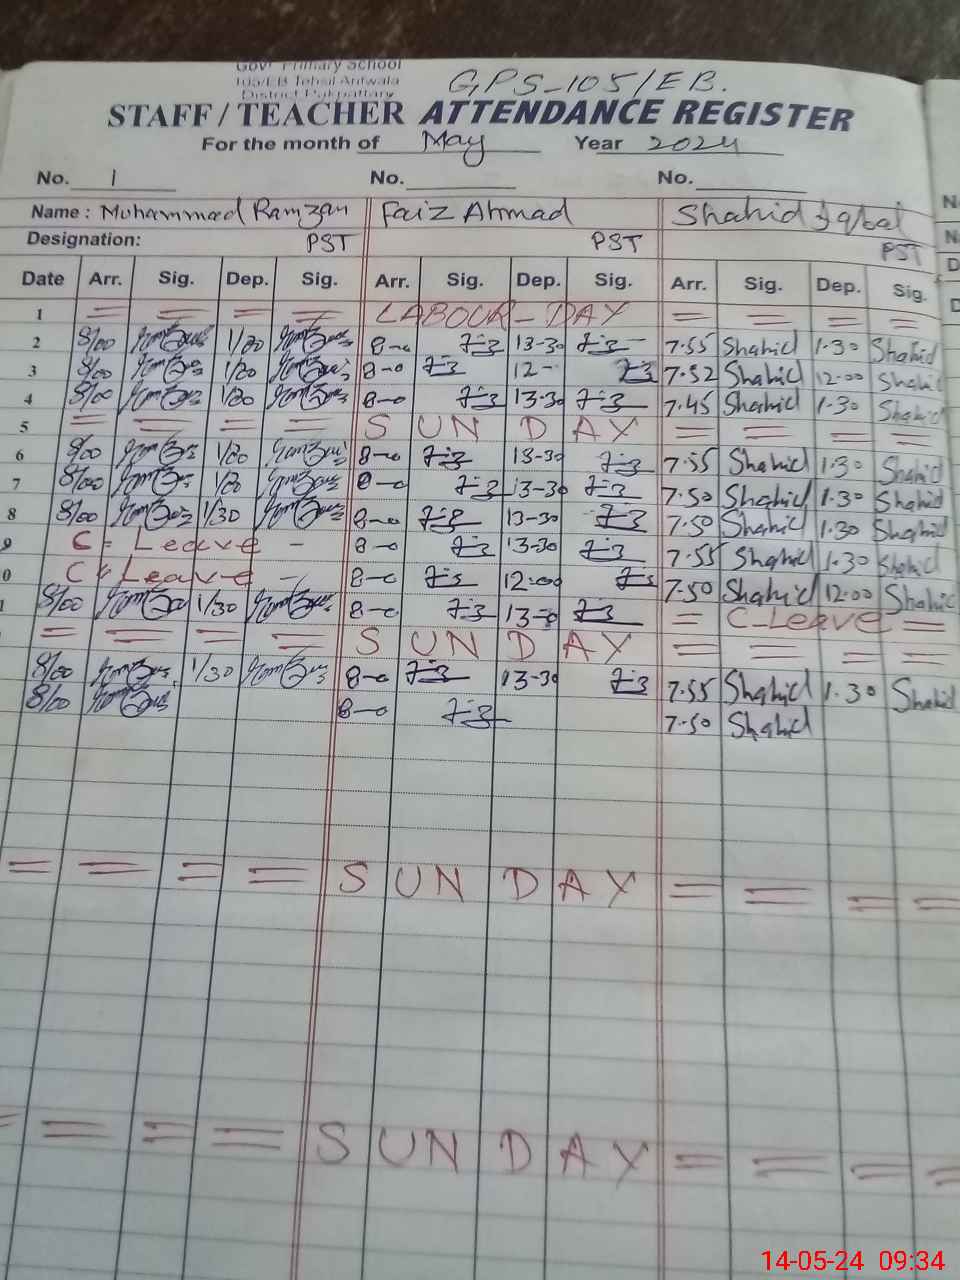 Govt Primary School
105/EB Tehsil Arifwala
District Pakpattan
GPS-105/EB.
STAFF / TEACHER ATTENDANCE REGISTER
For the month of May Year 2024
No. 1 No. No.
Name : Muhammad Ramzan Faiz Ahmad Shahid Iqbal
Designation: PST PST PST
Date Arr. Sig. Dep. Sig. Arr. Sig. Dep. Sig. Arr. Sig. Dep. Sig.
1 = = = = LABOUR-DAY = = = =
2 8/00 1/30 8-0 13-30 7.55 Shahid 1.30 Shahid
3 8/00 1/30 8-0 12- 7.52 Shahid 12.00 Shahid
4 8/00 1/30 8-0 13-30 7.45 Shahid 1.30 Shahid
5 = = = = SUNDAY = = = =
6 8/00 1/30 8-0 13-30 7.55 Shahid 1.30 Shahid
7 8/00 1/30 8-0 13-30 7.50 Shahid 1.30 Shahid
8 8/00 1/30 8-0 13-30 7.50 Shahid 1.30 Shahid
9 C = Leave - 8-0 13-30 7.55 Shahid 1.30 Shahid
0 C = Leave - 8-0 12-00 7.50 Shahid 12.00 Shahid
1 8/00 1/30 8-0 13-0 = C-Leave =
= = = = SUNDAY = = = =
8/00 1/30 8-0 13-30 7.55 Shahid 1.30 Shahid
8/00 8-0 7.50 Shahid
= = = = SUNDAY = = = =
= = = = SUNDAY = = = =
14-05-24 09:34